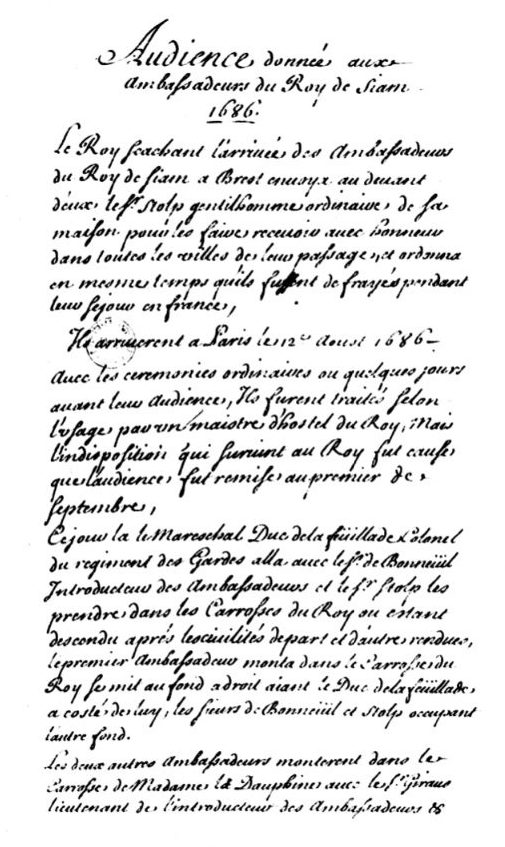 Audience donnée aux
Ambassadeurs du Roy de Siam
1686.
Le Roy scachant l'arrivée des Ambassadeurs
du Roy de Siam a Brest envoya au devant
d'eux le Sr. Stolp gentilhomme ordinaire de sa
maison pour les faire recevoir avec honneur
dans toutes les villes de leur passage, et ordonna
en mesme temps qu'ils fussent defrayés pendant
leur sejour en france,
Ils arriverent a Paris le 12e Aoust 1686
Avec les ceremonies ordinaires ou quelques jours
avant leur Audience, Ils furent traités selon
l'usage par un maistre d'hostel du Roy, Mais
l'indisposition qui survint au Roy fut cause
que l'audience fut remise au premier de
septembre,
Ce jour la le Mareschal Duc de la feüillade Colonel
du regiment des Gardes alla avec le Sr. de Bonneüil
Introducteur des Ambassadeurs et le Sr. Stolp les
prendre dans les Carrosses du Roy ou estant
descendu aprés les civilités de part et d'autre rendues,
le premier Ambassadeur monta dans le Carrosse du
Roy se mit au fond a droit aiant le Duc de la feüillade
a costé de luy, les sieurs de Bonneüil et Stolp occupant
l'autre fond.
Les deux autres Ambassadeurs monterent dans le
Carrosse de Madame la Dauphine avec le Sr. Giraus
lieutenant de l'introducteur des Ambassadeurs &